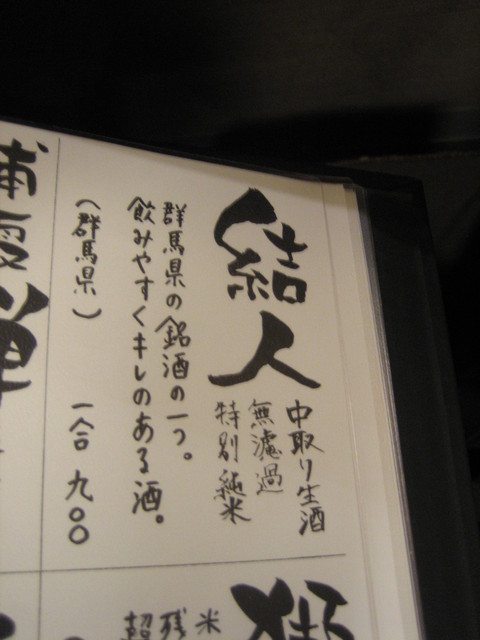 結人
中取り生酒
無濾過
特別純米
群馬県の銘酒の一つ。
飲みやすくキレのある酒。
(群馬県) 一合 九〇〇
浦霞禅
米
残
超